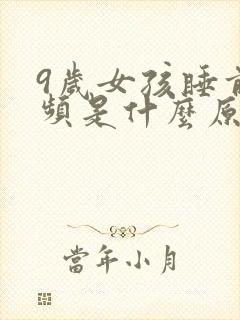 9歲女孩睡前
頻是什麼原
當年小月